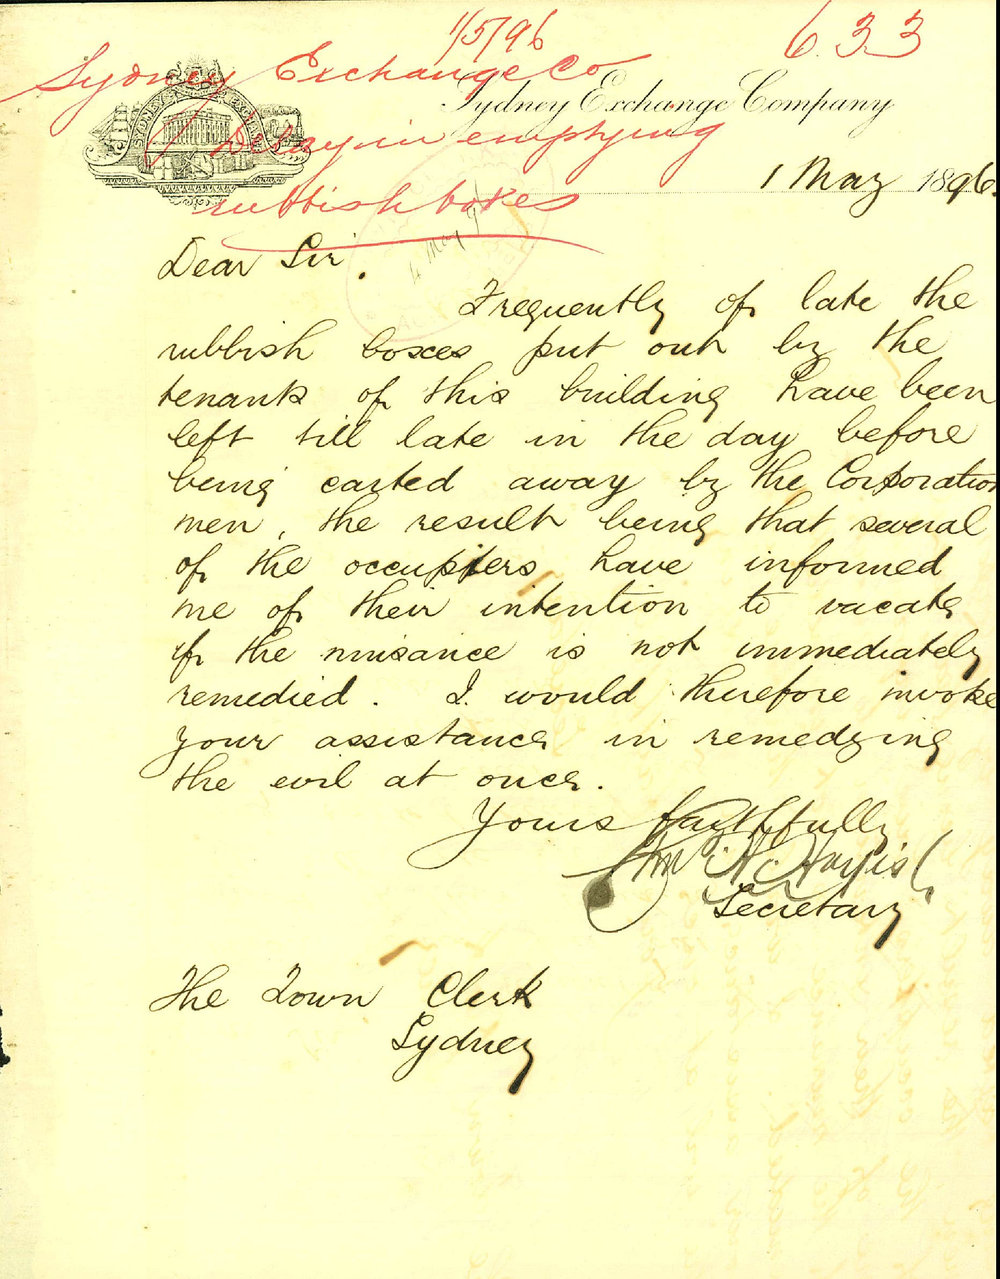 1/5/96
633
Sydney Exchange Co
Delay in emptying
rubbish boxes
SYDNEY EXCHANGE
Sydney Exchange Company
1 May 1896.
4 May 9
Dear Sir,
Frequently of late the
rubbish boxes put out by the
tenants of this building have been
left till late in the day before
being carted away by the Corporation
men, the result being that several
of the occupiers have informed
me of their intention to vacate
if the nuisance is not immediately
remedied. I would therefore invoke
your assistance in remedying
the evil at once.
Yours faithfully
Secretary
The Town Clerk
Sydney